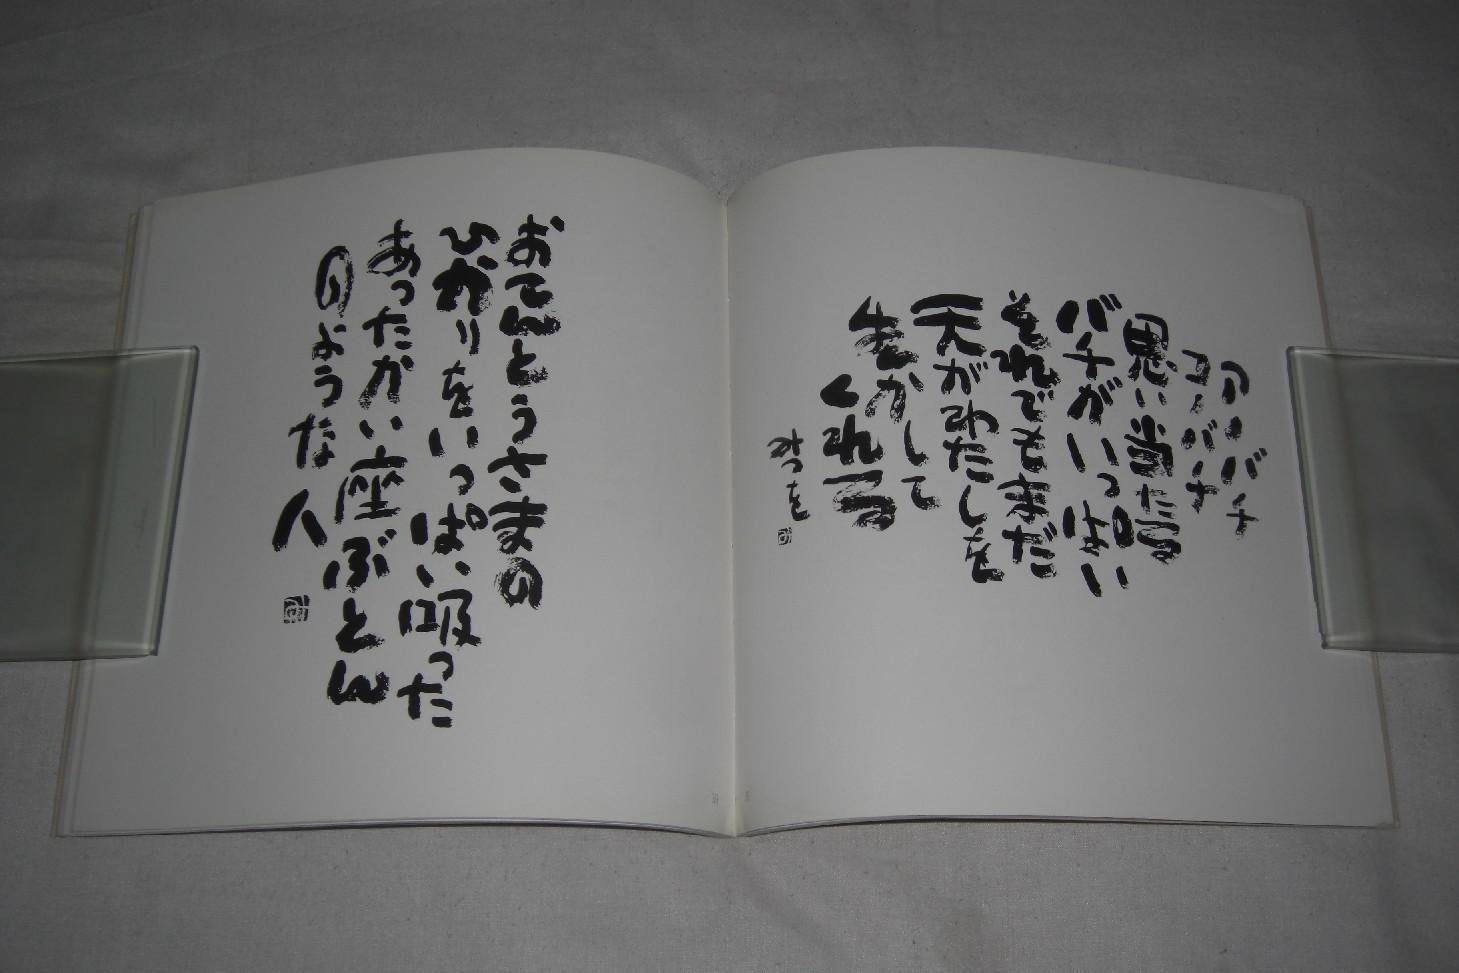 アノバチ
コノバチ
思い当たる
バチがいっぱい
それでもまだ
天がわたしを
生かして
くれる
みつを
おてんとうさまの
ひかりをいっぱい吸った
あったかい座ぶとん
のような人